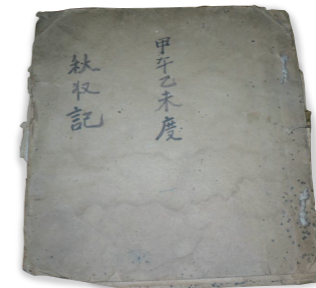 甲午乙未度
秋収記